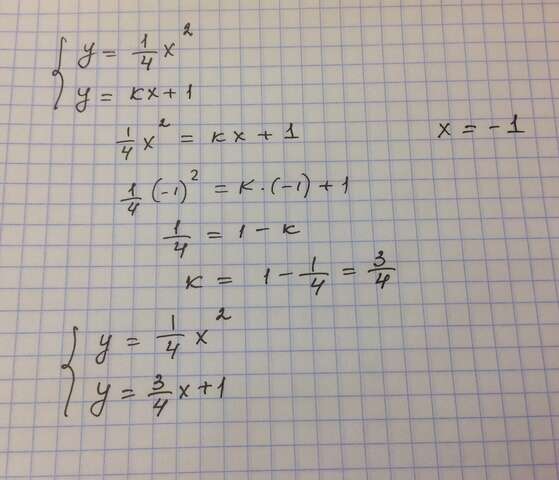 y = 1/4 x²
y = кx + 1
1/4 x² = кx + 1
x = -1
1/4 (-1)² = к·(-1) + 1
1/4 = 1 - к
к = 1 - 1/4 = 3/4
y = 1/4 x²
y = 3/4 x + 1